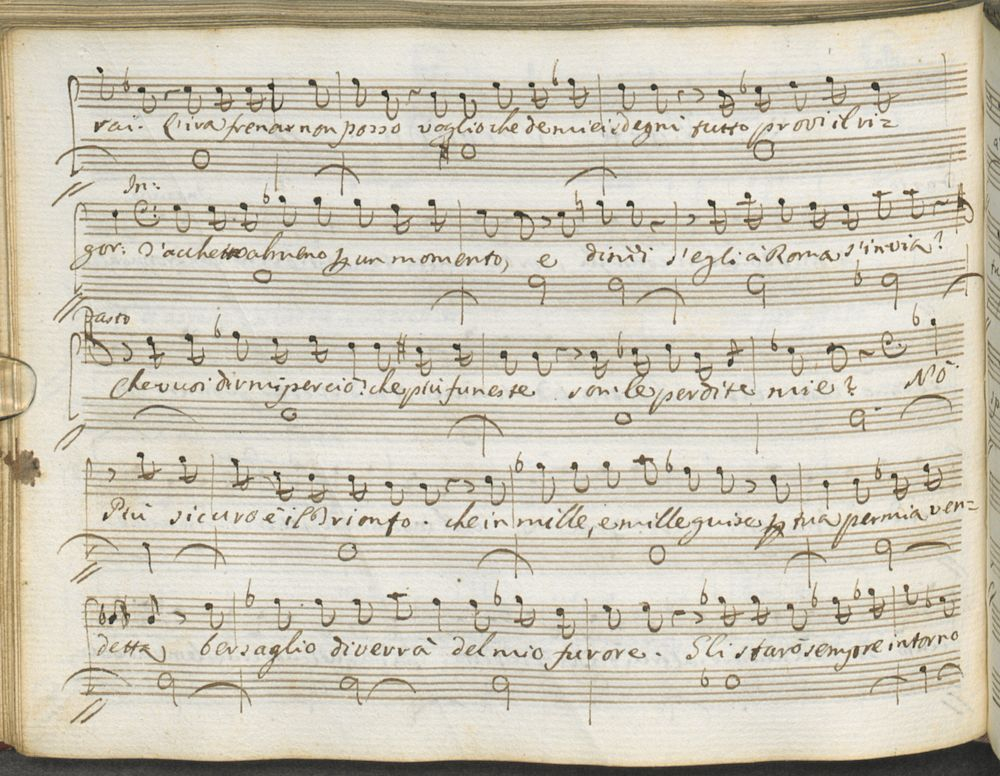 rai. L'ira frenar non posso voglio che de miei sdegni tutto provi il vi=
In:
gor: T'accheta almeno un momento, e dimi s'egli à Roma s'invia?
Che vuoi dirmi perciò? che più funeste son le perdite mie? Nò
Più sicuro è il Trionfo. che in mille, e mille guise tua per mia ven=
detta, bersaglio diverrà del mio furore. Gli starò sempre intorno